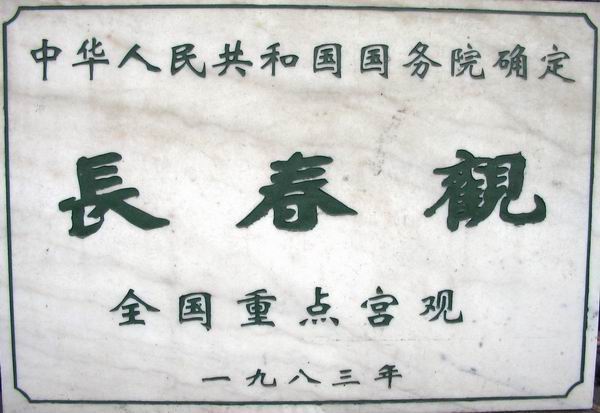 中华人民共和国国务院确定
長春觀
全国重点宫观
一九八三年